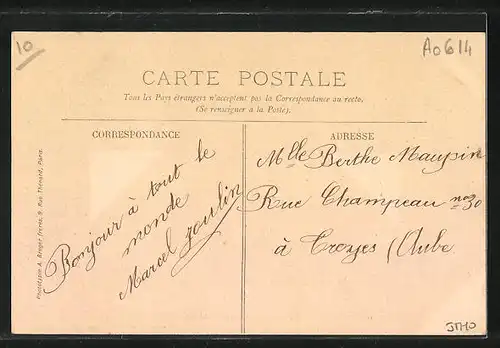 10
A0614
CARTE POSTALE
Tous les Pays étrangers n'acceptent pas la Correspondance au recto.
(Se renseigner à la Poste).
CORRESPONDANCE
Bonjour à tout le
monde
Marcel Joulin
ADRESSE
Mlle Berthe Maupin
Rue Champeau no 30
à Troyes (Aube
Phototypie A. Breger frères, 9, Rue Thénard, Paris.